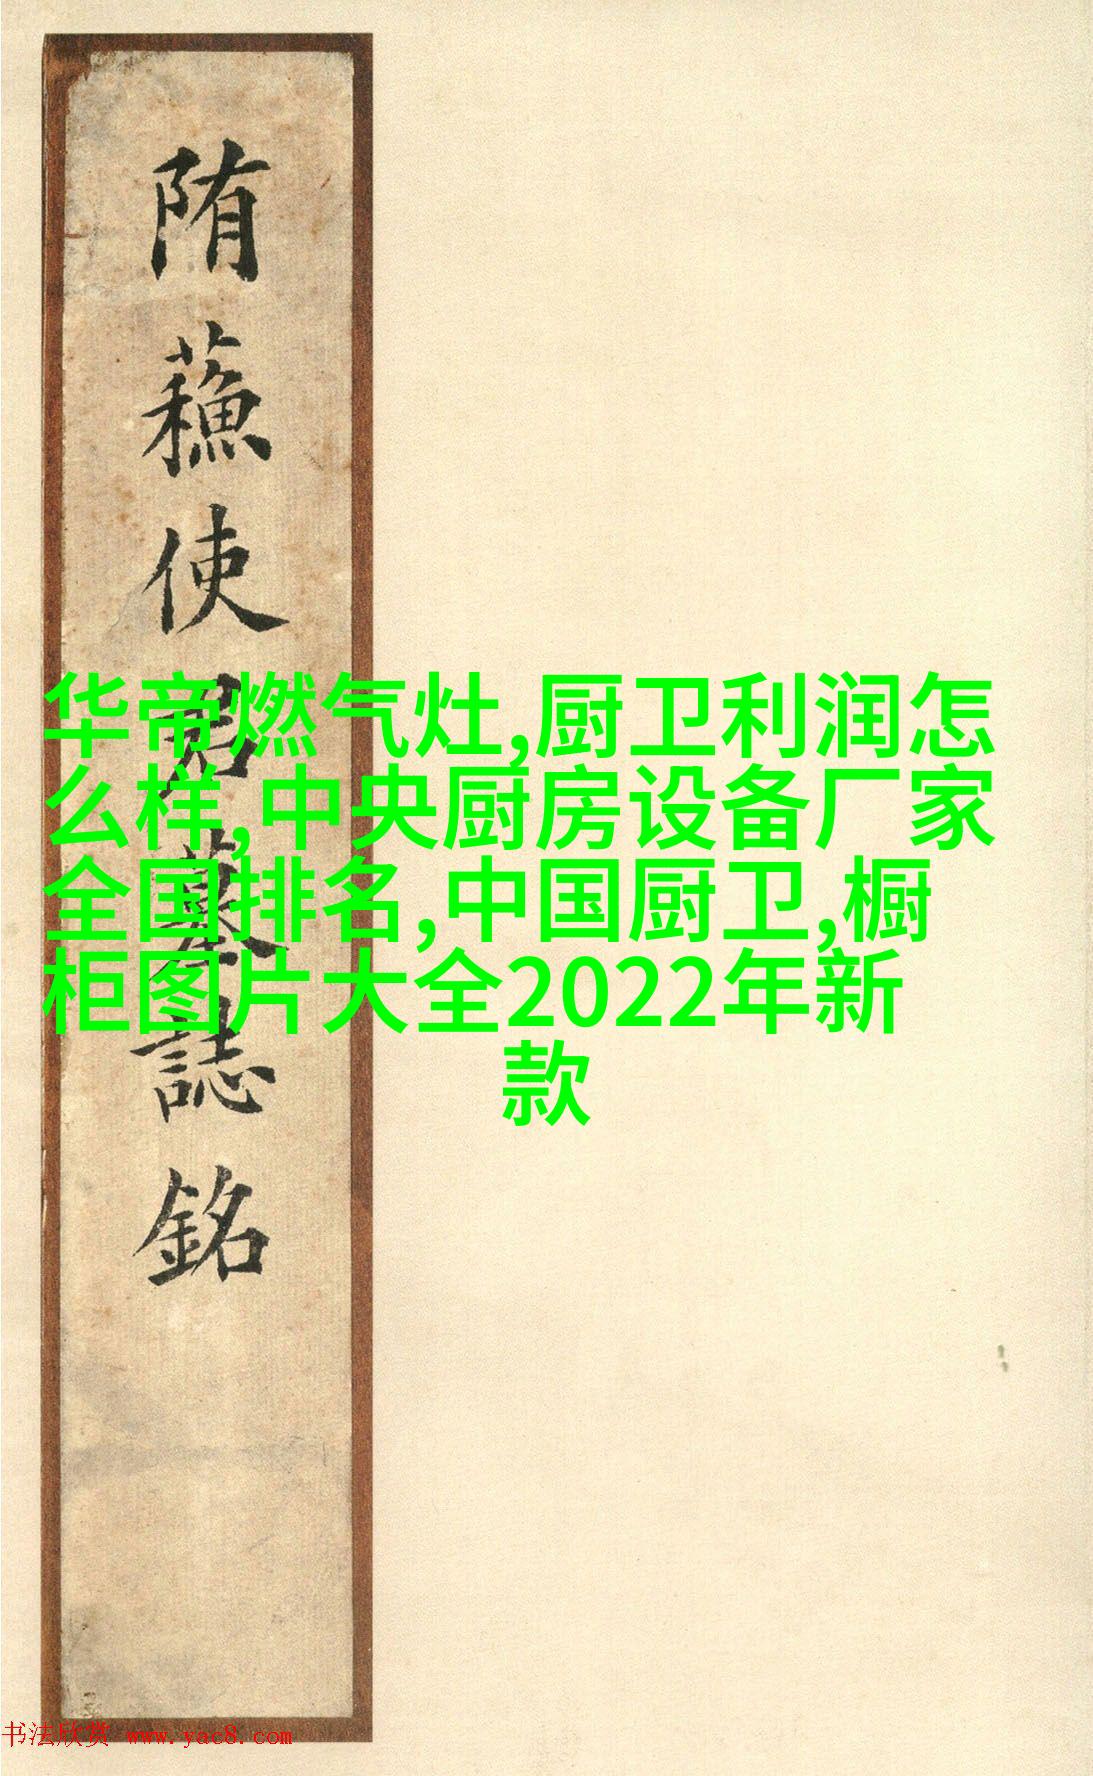 陏蘓使君墓誌銘
华帝燃气灶,厨卫利润怎
么样,中央厨房设备厂家
全国排名,中国厨卫,橱
柜图片大全2022年新
款
书法欣赏 www.yac8.com